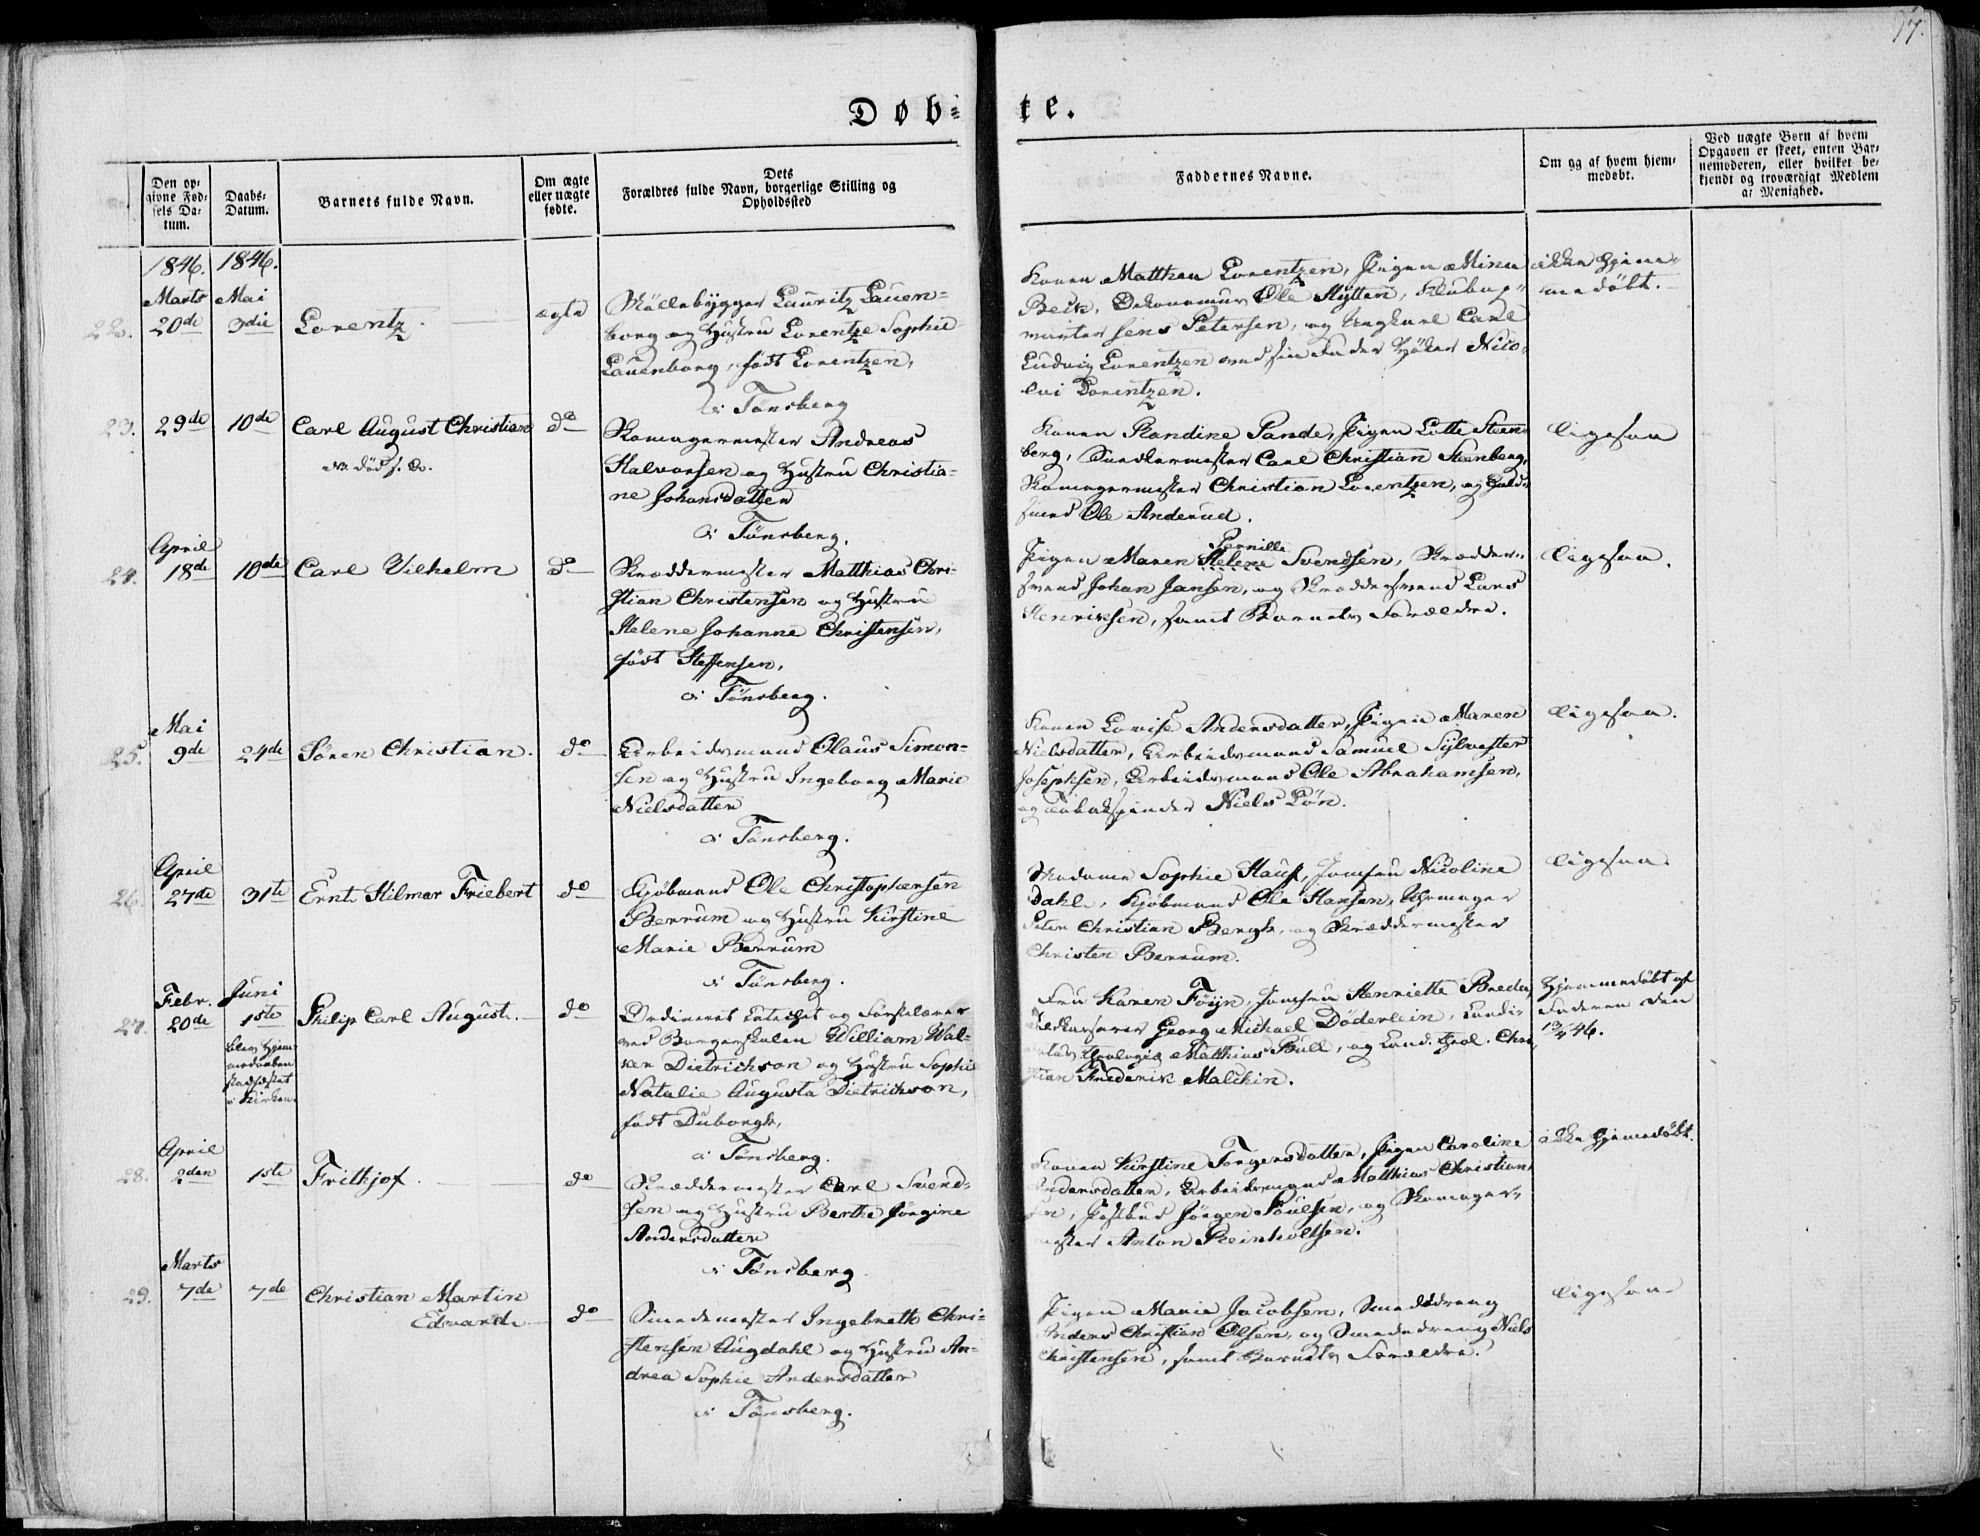 77.
Døb-
te.
Den op-
givne Fød-
sels Da-
tum.
Daabs-
Datum.
Barnets fulde Navn.
Om ægte
eller uægte
fødte.
Dets
Forældres fulde Navn, borgerlige Stilling og
Opholdssted
Faddernes Navne.
Om og af hvem hjem-
medøbt.
Ved uægte Børn af hvem
Opgaven er skeet, enten Bar-
nemoderen, eller hvilket be-
kjendt og troværdigt Medlem
af Menighed.
1846. 1846.
22.
Marts
20de
Mai
3die
Lorentz.
ægte
Møllebygger Lauritz Lauen-
borg og Hustru Lorentze Sophie
Lauenborg, født Lorentzen,
i Tønsberg
Konen Matthea Lorentzen, Pigen Mina
Beck, Oekonomus Ole Hytten,
Jens Petersen, og Ungkarl Carl
Ludvig Lorentzen med sin Fader Nico-
lai Lorentzen.
ikke hjem-
medøbt.
23.
29de
10de
Carl August Christian
død
do
Skomagermester Andreas
Halvorsen og Hustru Christia-
ne Johansdatter
i Tønsberg.
Konen Randine Sande, Pigen Lotte Steen-
berg, Snedkermester Carl Christian Steenberg,
Skomagermester Christian Lorentzen, og
Ole Anderud.
ligesaa
24.
April
18de
10de
Carl Vilhelm
do
Skræddermester Matthias Chri-
stian Christensen og Hustru
Helene Johanne Christensen,
født Steffensen,
i Tønsberg.
Pernille
Pigen Maren Helene Svendsen, Skrædder-
svend Johan Jansen, og Skræddersvend Lars
Henriksen, samt Barnets Forældre.
ligesaa.
25.
Mai
9de
24de
Søren Christian.
do
Arbeidsmand Olaus Simon-
sen og Hustru Ingeborg Marie
Nielsdatter
i Tønsberg.
Konen Lovise Andersdatter, Pigen Maren
Nielsdatter, Arbeidsmand Samuel Sylvester
Josephsen, Arbeidsmand Ole Abrahamsen,
og Tobakspinder Niels Løn.
ligesaa.
26.
April
27de
31te
Ernt Hilmar Friebert
do
Kjøbmand Ole Christophersen
Berrum og Hustru Kirstine
Marie Berrum
i Tønsberg.
Madame Sophie Hauf, Jomfru Nicoline
Dahl, Kjøbmand Ole Hansen, Uhrmager
Peter Christian Bergh, og Skræddermester
Christen Berrum.
ligesaa.
27.
Febr.
20de
Juni
1ste
blev Hjem-
medaaben
stadfæstet
i Kirken.
Philip Carl August.
do
og Førstelærer
ved Borgerskolen William Wal-
ker Dietrichson og Hustru Sophie
Natalie Augusta Dietrichson,
født Duborgh,
i Tønsberg.
Fru Karen Føyn, Jomfru Henriette Breda,
Georg Michael Döderlein, Candi-
datus theologiæ Matthias Bull, og Cand. theol. Chri-
stian Frederik Malchin.
Hjemmedøbt af
Faderen den
46.
28.
April
2den
1ste
Frithjof.
do
Skræddermester Carl Svend-
sen og Hustru Berthe Jørgine
Andersdatter
i Tønsberg
Konen Kirstine Torgersdatter, Pigen Caroline
Andersdatter, Arbeidsmand Matthias Christian-
sen, Postbud Jørgen Poulsen, og Skomager-
mester Anton Reinholtsen.
ikke hjemmedøbt.
29.
Marts
7de
7de
Christian Martin
Edvard
do
Smedemester Ingebreth Chri-
stensen Augdahl og Hustru An-
drea Sophie Andersdatter
i Tønsberg.
Pigen Maria Jacobsen, Smededreng
Anders Christian Olsen, og Smededreng Niels
Christensen, samt Barnets Forældre.
ligesaa